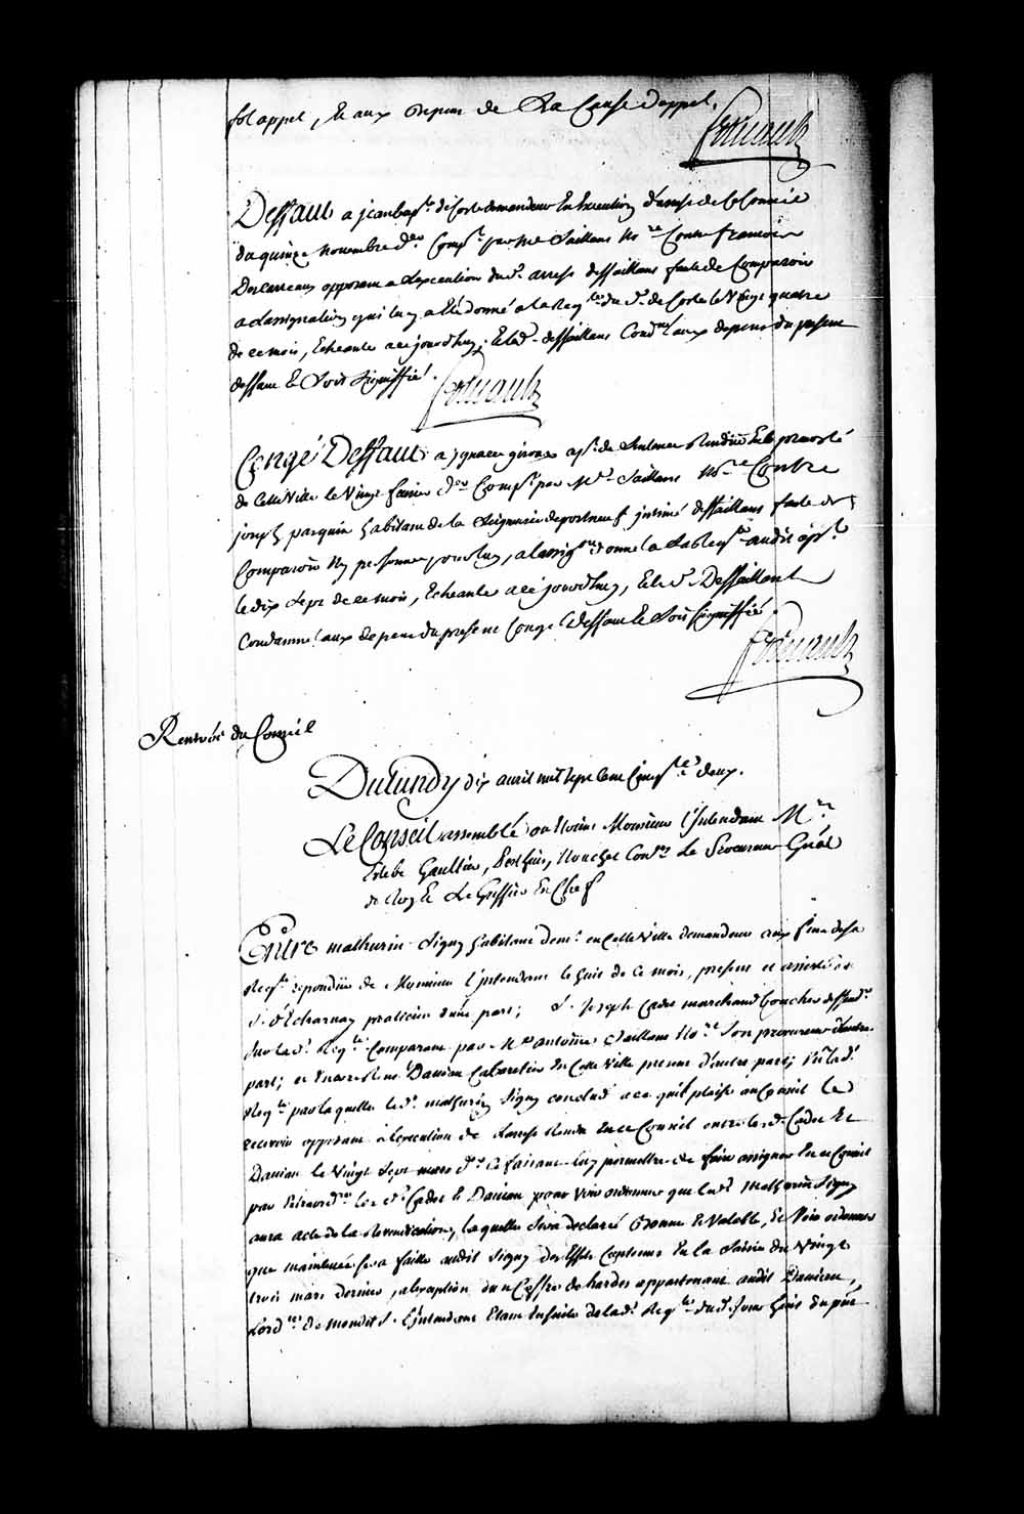 fol appel, Et aux depens de La Cause d'appel.
Deffaut a jean bapte. decoste demandeur En Execution d'arrest de ce Conseil
du quinze novembre der. Compt. par Me Saillant No.re Contre francois
Descarreaux opposant a L'execution dud. arrest deffaillant faute de Comparoir
a L'assignation qui luy a Eté donné a la Reqte. du d. decoste le Vingt quatre
de ce mois, Echeante a cejourd'huy; Et led. deffaillant Condné. aux depens du present
deffaut Et Soit Signiffié.
Congé Deffaut a ignace
de Cette Ville le Vingt der Compt. par Mre. Saillant Nore. Contre
joseph paquin habitant de la Seigneurie de portneuf intimé deffaillant faute de
Comparoir Ny personne pour luy, a l'assigon. donné a La Reqte. audit
le dix Sept de ce mois, Echeante a cejourd'huy, Et led. Deffaillant
Condamné aux depens du present Congé Deffaut Et Soit Signiffié.
Renvoié du Conseil
Du Lundy dix avril mil sept Cent Cinqte. deux.
Le Conseil assemblé ou Etoient Monsieur l'Intendant Mrs.
Estebe Gaultier, Perthuis, Nouchet Coners. Le Procureur Gnâl
du Roy Et Le Greffier En Chef
Entre mathurin Signy habitant demt. en Cette Ville demandeur aux fins de sa
Reqte. repondüe de Monsieur l'intendant le huit de ce mois, present et assisté du
S. D'Echarnay praticien d'une part; S. Joseph Cadet marchand boucher deffendr.
Sur lad. Reqte. Comparant par Me antoine Saillant Nore. Son procureur d'autre
part; et Damien Cabaretier En Cette Ville present d'autre part; Vû lad.
Reqte. par laquelle led. mathurin Signy conclud a ce qu'il plaise au Conseil Le
recevoir opposant a l'execution de L'arrest Rendu En ce Conseil entre lesd. Cadet Et
Damien le Vingt Sept mars dr. ce faisant luy permettre de faire assigner En ce Conseil
par Extraordre. les d. Cadet Et Damien pour Voir ordonner que led. Mathurin Signy
aura acte de la Revendication, laquelle Sera declaré bonne Et Valable, Et Voir ordonner
que mainlevée Sera faitte audit Signy des Effets Contenus En la Saisie du Vingt
trois mars dernier, a l'exception du Coffre de hardes appartenant audit Damien,
Lordce. de Mondit S. L'Intendant Etant Ensuite de lad. Reqte. dud. Jour huit